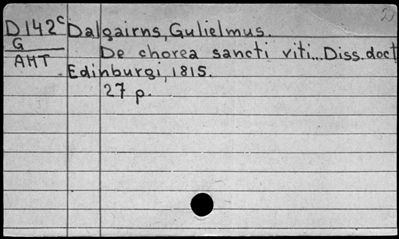 D142c Dalgairns, Gulielmus.
G De chorea sancti viti... Diss. doct
AMT Edinburgi, 1815.
27 p.